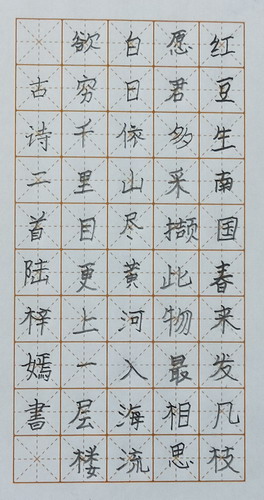 红豆生南国春来发几枝
愿君多采撷此物最相思
白日依山尽黄河入海流
欲穷千里目更上一层楼
古诗二首陆梓嫣書